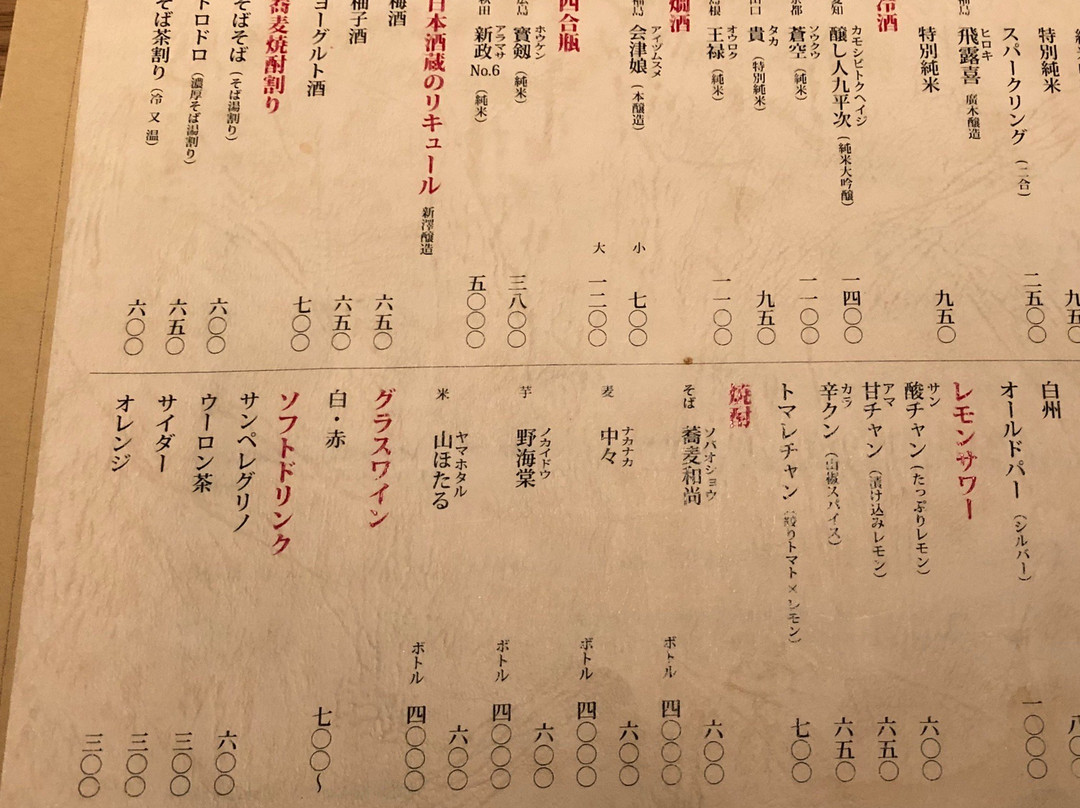 特別純米
九五〇
スパークリング（二合）
二五〇〇
ヒロキ
飛露喜 廣木醸造
特別純米
九五〇
冷酒
カモシビトクヘイジ
醸し人九平次（純米大吟醸）
一四〇〇
ソウクウ
蒼空（純米）
一一〇〇
タカ
貴（特別純米）
九五〇
島根
オウロク
王禄（純米）
一一〇〇
燗酒
福島
アイヅムスメ
会津娘（本醸造）
小 七〇〇
大 一二〇〇
四合瓶
広島
ホウケン
寳剱（純米）
三八〇〇
秋田
アラマサ
新政 No.6（純米）
五〇〇〇
日本酒蔵のリキュール 新澤醸造
梅酒
六五〇
柚子酒
六五〇
ヨーグルト酒
七〇〇
蕎麦焼酎割り
そばそば（そば湯割り）
六〇〇
トロドロ（濃厚そば湯割り）
六五〇
そば茶割り（冷 又 温）
六〇〇
白州
オールドパー（シルバー）
一〇〇〇
レモンサワー
サン
酸チャン（たっぷりレモン）
六〇〇
アマ
甘チャン（漬け込みレモン）
六五〇
カラ
辛クン（山椒スパイス）
六五〇
トマレチャン（絞りトマト×レモン）
七〇〇
焼酎
そば
ソバオショウ
蕎麦和尚
六〇〇
ボトル 四〇〇〇
麦
ナカナカ
中々
六〇〇
ボトル 四〇〇〇
芋
ノカイドウ
野海棠
六〇〇
ボトル 四〇〇〇
米
ヤマホタル
山ほたる
六〇〇
ボトル 四〇〇〇
グラスワイン
白・赤
七〇〇～
ソフトドリンク
サンペレグリノ
六〇〇
ウーロン茶
三〇〇
サイダー
三〇〇
オレンジ
三〇〇